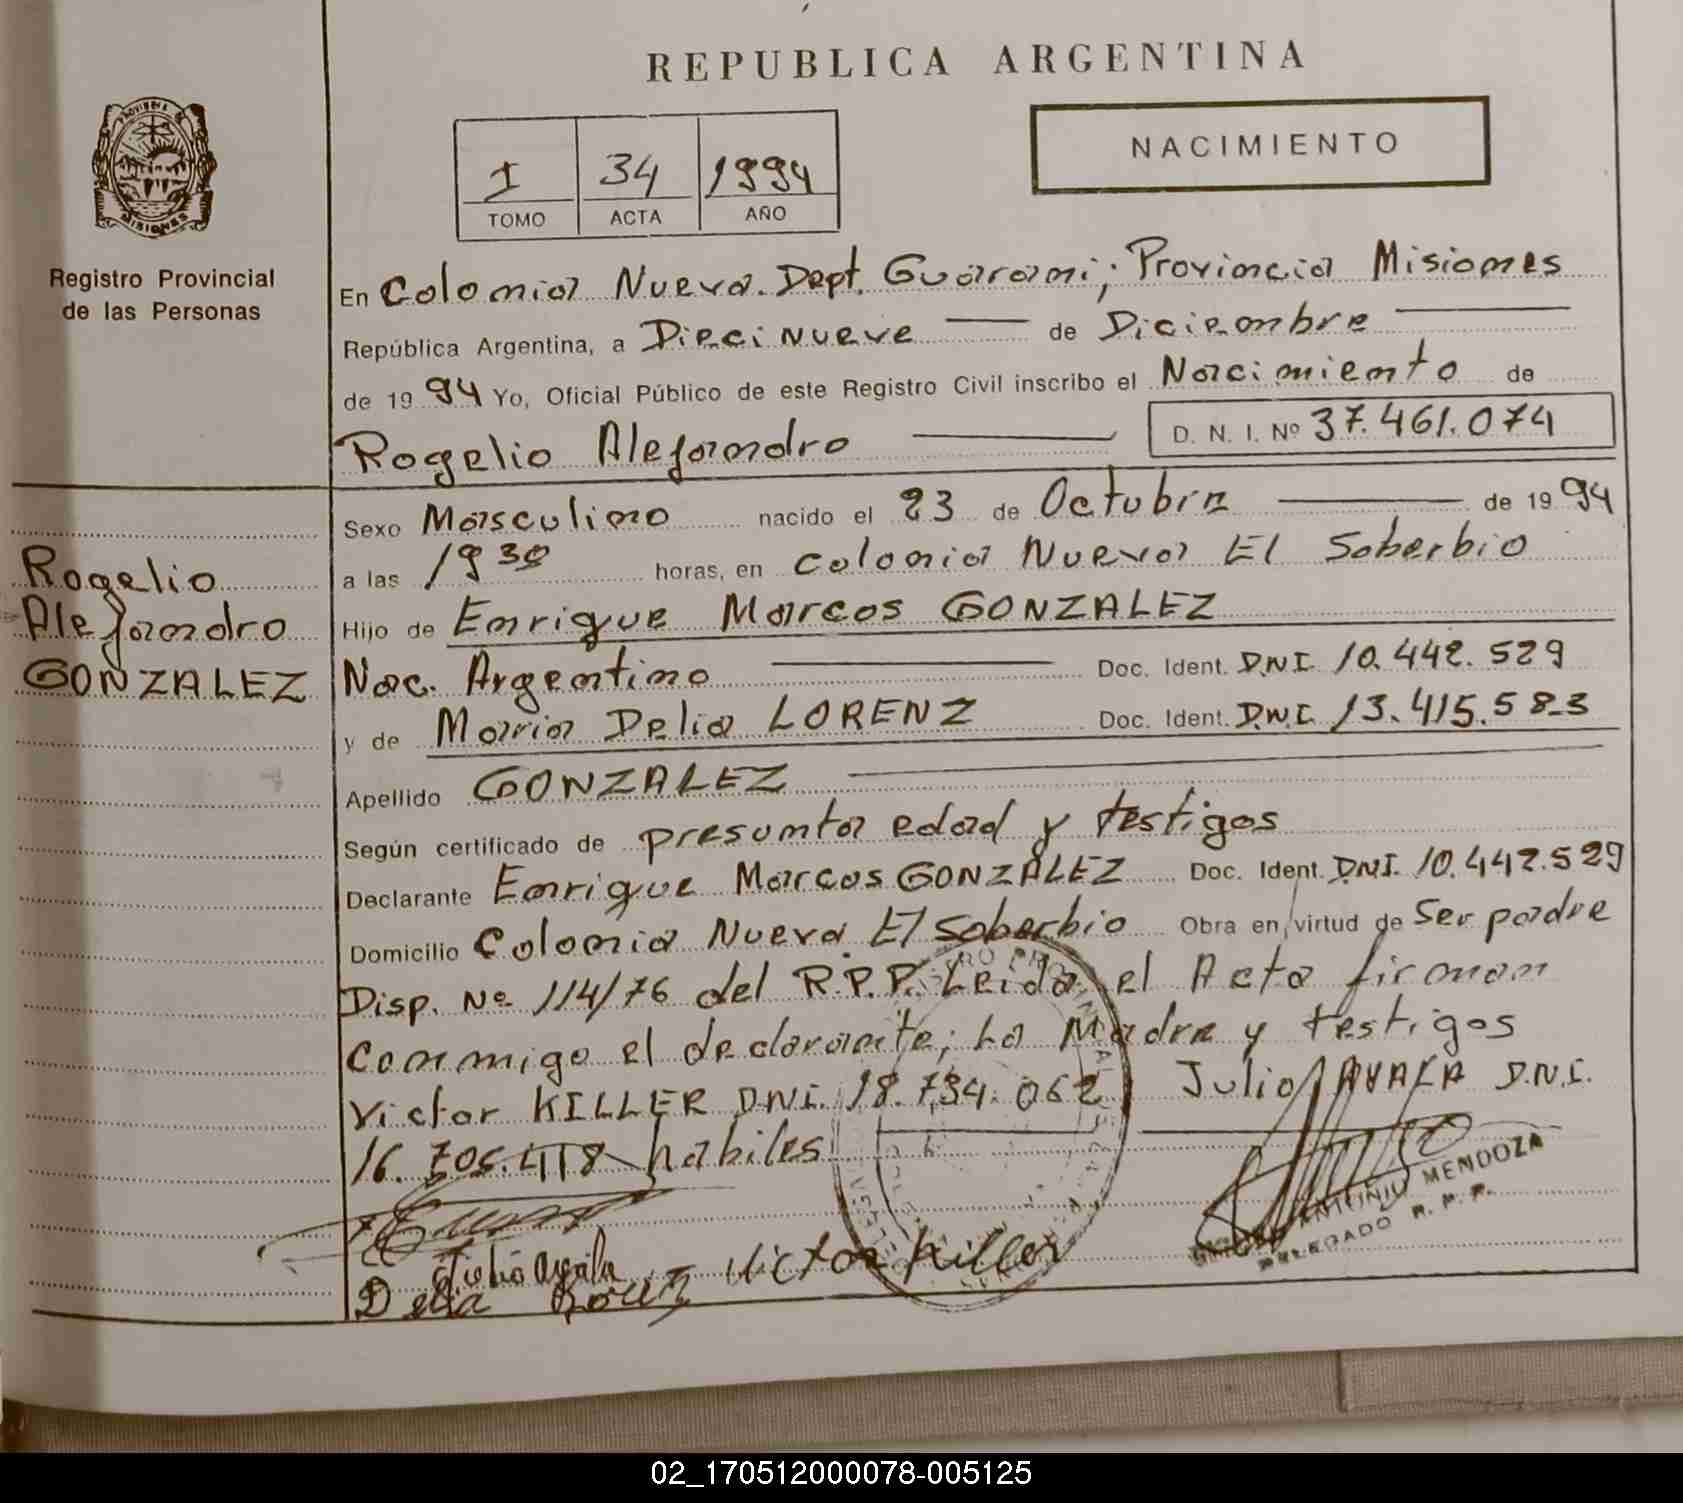 REPUBLICA ARGENTINA
PROVINCIA
MISIONES
Registro Provincial
de las Personas
I 34 1994
TOMO ACTA AÑO
NACIMIENTO
En Colonia Nueva. Dept. Guarani; Provincia Misiones
República Argentina, a Dieci Nueve de Diciembre
de 1994 Yo, Oficial Público de este Registro Civil inscribo el Nacimiento de
Rogelio Alejandro D. N. I. Nº 37.461.074
Rogelio
Alejandro
GONZALEZ
Sexo Masculino nacido el 23 de Octubre de 1994
a las 1930 horas, en Colonia Nueva El Soberbio
Hijo de Enrique Marcos GONZALEZ
Nac. Argentino Doc. Ident. D.N.I. 10.442.529
y de Maria Delia LORENZ Doc. Ident. D.N.I. 13.415.583
Apellido GONZALEZ
Según certificado de presunta edad y testigos
Declarante Enrique Marcos GONZALEZ Doc. Ident. DNI. 10.442.529
Domicilio Colonia Nueva El Soberbio Obra en virtud de Ser padre
Disp. Nº 114/76 del R.P.P. Leida el Acta firman
conmigo el declarante; La Madre y testigos
Victor KILLER DNI. 18.734.062 Julio AYALA D.N.I.
16.705.418 habiles
Julio ayala Victor Killer
Delia Lorenz
ANTONIO MENDOZA
DELEGADO R. P. P.
02_170512000078-005125